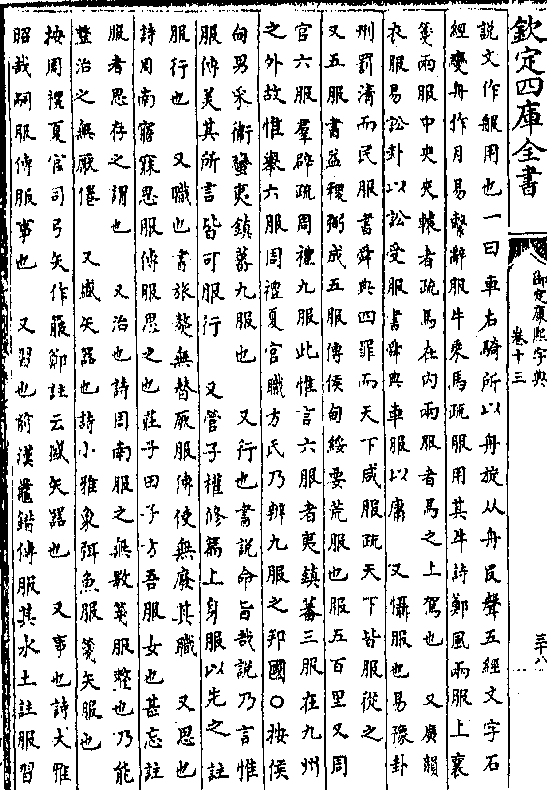 欽定四庫全書
御定康熙字典
卷十三
三十八
說文作服用也一曰車右騎所以舟旋从舟𠬝聲五經文字石
經變舟作月易繫辭服牛乗馬疏服用其牛詩鄭風兩服上襄
箋兩服中央夾轅者疏馬在内兩服者馬之上駕也 又廣韻
衣服易訟卦以訟受服書舜典車服以庸 又懾服也易豫卦
刑罰清而民服書舜典四罪而天下咸服疏天下皆服從之
又五服書益稷弼成五服傳侯甸綏要荒服也服五百里又周
官六服羣辟疏周禮九服此惟言六服者夷鎮蕃三服在九州
之外故惟舉六服周禮夏官職方氏乃辨九服之邦國○按侯
甸男采衛蠻夷鎮蕃九服也 又行也書說命旨哉說乃言惟
服傳美其所言皆可服行 又管子權修篇上身服以先之註
服行也 又職也書旅獒無替厥服傳使無廢其職 又思也
詩周南寤寐思服傳服思之也莊子田子方吾服女也甚忘註
服者思存之謂也 又治也詩周南服之無斁箋服整也乃能
整治之無厭倦 又盛矢器也詩小雅象弭魚服箋矢服也
按周禮夏官司弓矢作箙鄭註云盛矢器也 又事也詩大雅
昭哉嗣服傳服事也 又習也前漢鼂錯傳服其水土註服習